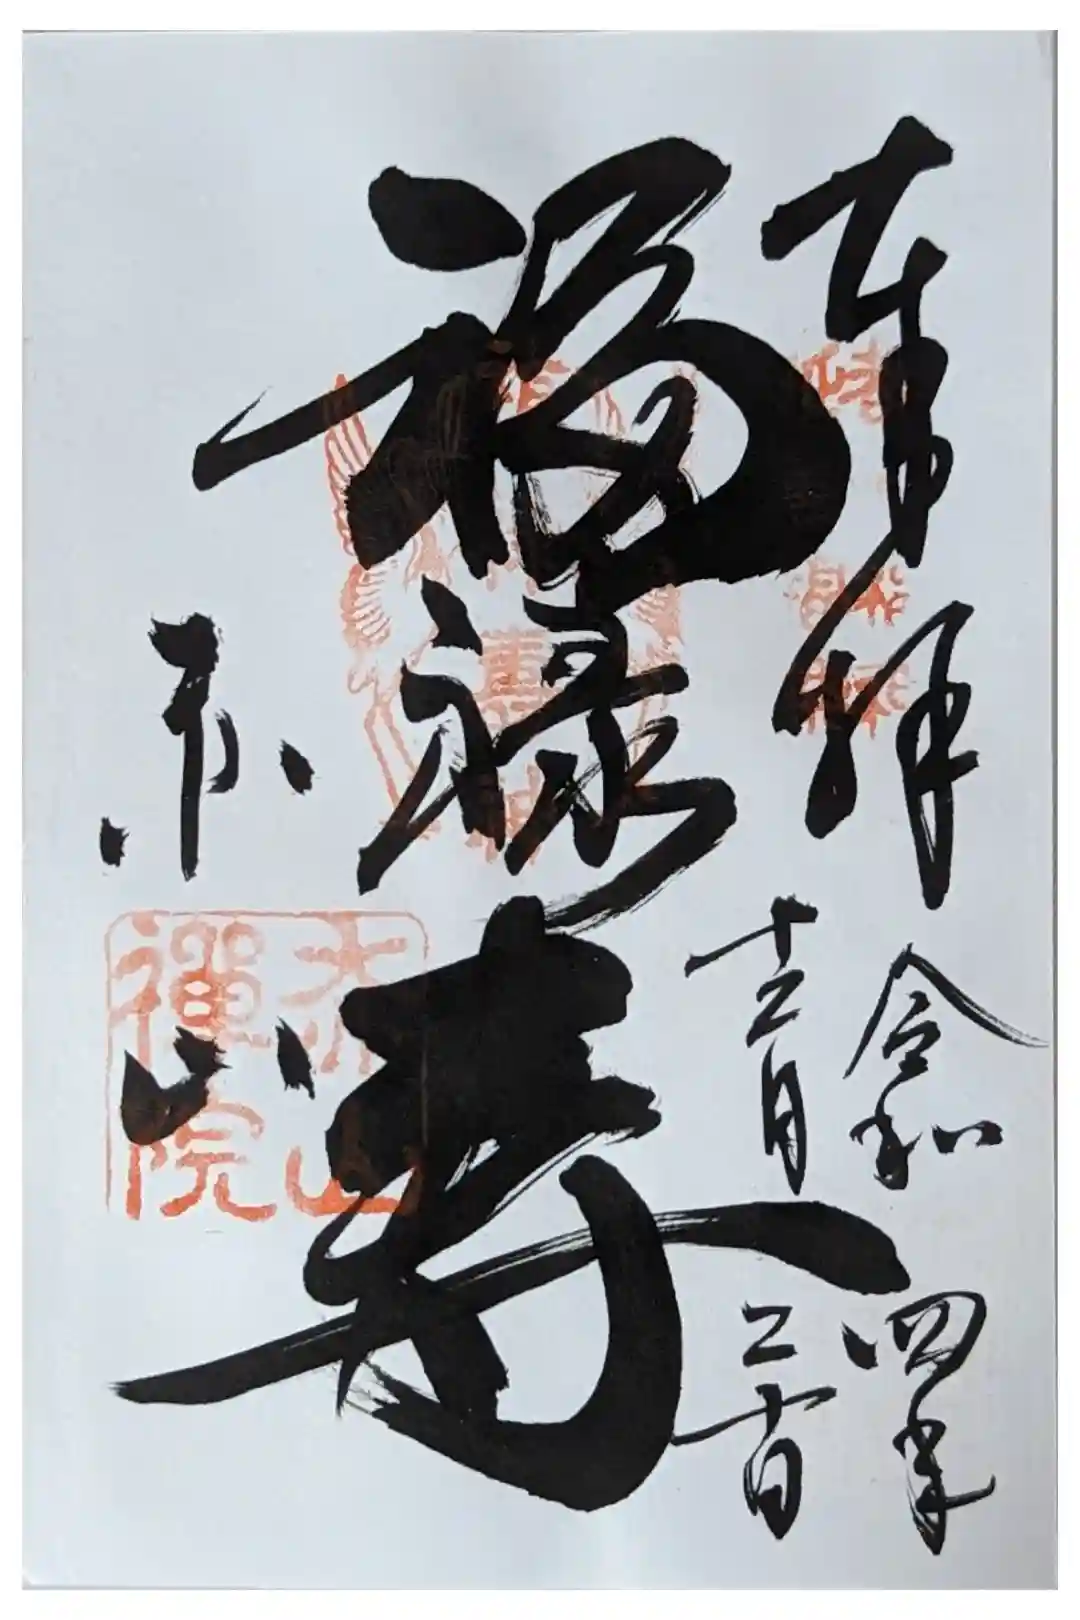 奉拝
令和四年
十二月二十日
福禄寿
赤山
赤山
禅院